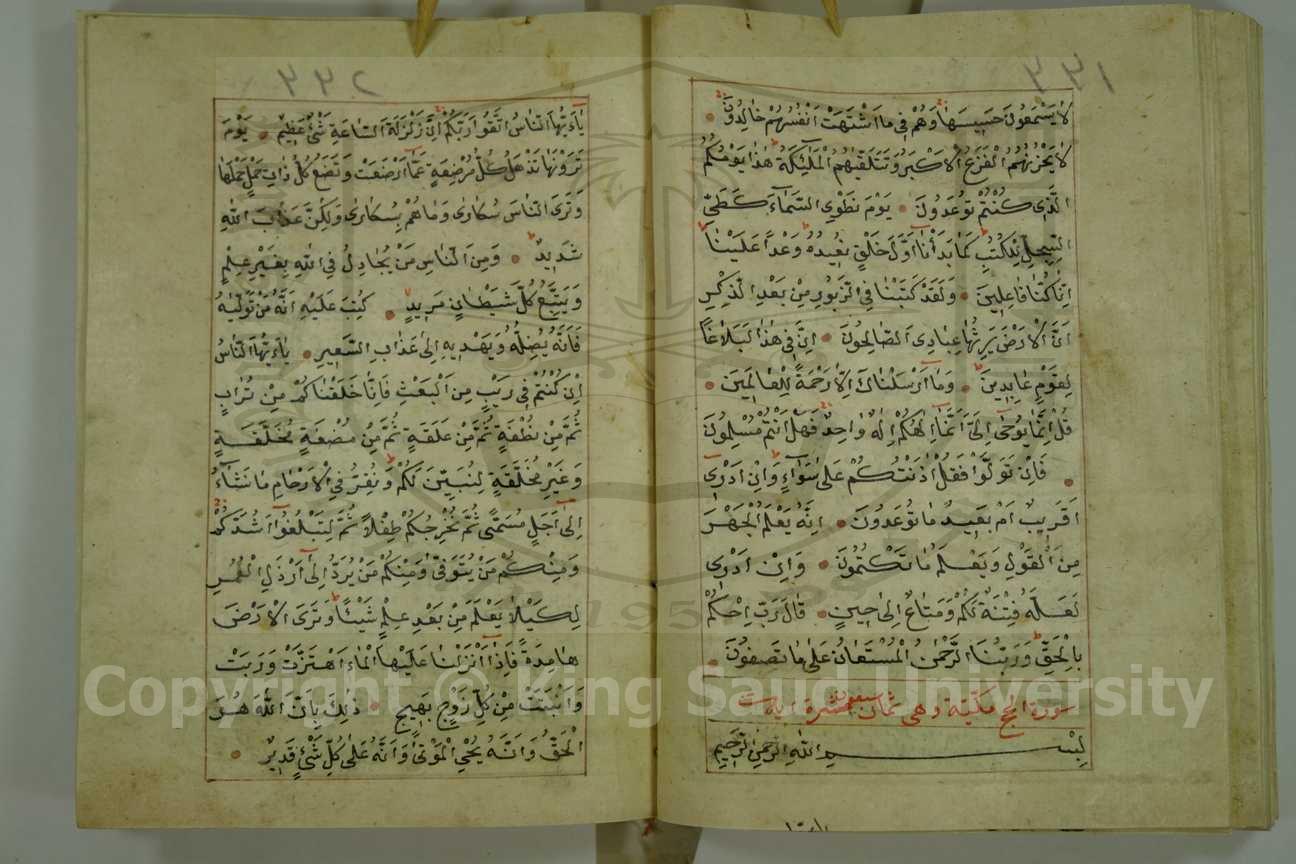 ٣٣١
لَا يَسْمَعُونَ حَسِيسَهَا وَهُمْ فِي مَا اشْتَهَتْ أَنْفُسُهُمْ خَالِدُونَ
لَا يَحْزُنُهُمُ الْفَزَعُ الْأَكْبَرُ وَتَتَلَقَّيٰهُمُ الْمَلٰٓئِكَةُ هٰذَا يَوْمُكُمُ
الَّذِي كُنْتُمْ تُوعَدُونَ يَوْمَ نَطْوِي السَّمَآءَ كَطَيِّ
السِّجِلِّ لِلْكُتُبِ كَمَا بَدَأْنَا أَوَّلَ خَلْقٍ نُعِيدُهُ وَعْدًا عَلَيْنَا
إِنَّا كُنَّا فَاعِلِينَ وَلَقَدْ كَتَبْنَا فِي الزَّبُورِ مِنْ بَعْدِ الذِّكْرِ
أَنَّ الْأَرْضَ يَرِثُهَا عِبَادِيَ الصَّالِحُونَ إِنَّ فِي هٰذَا لَبَلَاغًا
لِقَوْمٍ عَابِدِينَ وَمَا أَرْسَلْنَاكَ إِلَّا رَحْمَةً لِلْعَالَمِينَ
قُلْ إِنَّمَا يُوحٰى إِلَيَّ أَنَّمَا إِلٰهُكُمْ إِلٰهٌ وَاحِدٌ فَهَلْ أَنْتُمْ مُسْلِمُونَ
فَإِنْ تَوَلَّوْا فَقُلْ اٰذَنْتُكُمْ عَلٰى سَوَآءٍ وَإِنْ أَدْرِي
أَقَرِيبٌ أَمْ بَعِيدٌ مَا تُوعَدُونَ إِنَّهُ يَعْلَمُ الْجَهْرَ
مِنَ الْقَوْلِ وَيَعْلَمُ مَا تَكْتُمُونَ وَإِنْ أَدْرِي
لَعَلَّهُ فِتْنَةٌ لَكُمْ وَمَتَاعٌ إِلٰى حِينٍ قَالَ رَبِّ احْكُمْ
بِالْحَقِّ وَرَبُّنَا الرَّحْمٰنُ الْمُسْتَعَانُ عَلٰى مَا تَصِفُونَ
سورة الحج مكية وهي ثمان سبعون اية
بِسْمِ اللهِ الرَّحْمٰنِ الرَّحِيمِ
٣٣٢
يَآ أَيُّهَا النَّاسُ اتَّقُوا رَبَّكُمْ إِنَّ زَلْزَلَةَ السَّاعَةِ شَيْءٌ عَظِيمٌ يَوْمَ
تَرَوْنَهَا تَذْهَلُ كُلُّ مُرْضِعَةٍ عَمَّا أَرْضَعَتْ وَتَضَعُ كُلُّ ذَاتِ حَمْلٍ حَمْلَهَا
وَتَرَى النَّاسَ سُكَارٰى وَمَا هُمْ بِسُكَارٰى وَلٰكِنَّ عَذَابَ اللهِ
شَدِيدٌ وَمِنَ النَّاسِ مَنْ يُجَادِلُ فِي اللهِ بِغَيْرِ عِلْمٍ
وَيَتَّبِعُ كُلَّ شَيْطَانٍ مَرِيدٍ كُتِبَ عَلَيْهِ أَنَّهُ مَنْ تَوَلَّيٰهُ
فَأَنَّهُ يُضِلُّهُ وَيَهْدِيهِ إِلٰى عَذَابِ السَّعِيرِ يَآ أَيُّهَا النَّاسُ
إِنْ كُنْتُمْ فِي رَيْبٍ مِنَ الْبَعْثِ فَإِنَّا خَلَقْنَاكُمْ مِنْ تُرَابٍ
ثُمَّ مِنْ نُطْفَةٍ ثُمَّ مِنْ عَلَقَةٍ ثُمَّ مِنْ مُضْغَةٍ مُخَلَّقَةٍ
وَغَيْرِ مُخَلَّقَةٍ لِنُبَيِّنَ لَكُمْ وَنُقِرُّ فِي الْأَرْحَامِ مَا نَشَآءُ
إِلٰى أَجَلٍ مُسَمًّى ثُمَّ نُخْرِجُكُمْ طِفْلًا ثُمَّ لِتَبْلُغُوا أَشُدَّكُمْ
وَمِنْكُمْ مَنْ يُتَوَفّٰى وَمِنْكُمْ مَنْ يُرَدُّ إِلٰى أَرْذَلِ الْعُمُرِ
لِكَيْلَا يَعْلَمَ مِنْ بَعْدِ عِلْمٍ شَيْئًا وَتَرَى الْأَرْضَ
هَامِدَةً فَإِذَا أَنْزَلْنَا عَلَيْهَا الْمَاءَ اهْتَزَّتْ وَرَبَتْ
وَأَنْبَتَتْ مِنْ كُلِّ زَوْجٍ بَهِيجٍ ذٰلِكَ بِأَنَّ اللهَ هُوَ
الْحَقُّ وَأَنَّهُ يُحْيِ الْمَوْتٰى وَأَنَّهُ عَلٰى كُلِّ شَيْءٍ قَدِيرٌ
Copyright © King Saud University
1957